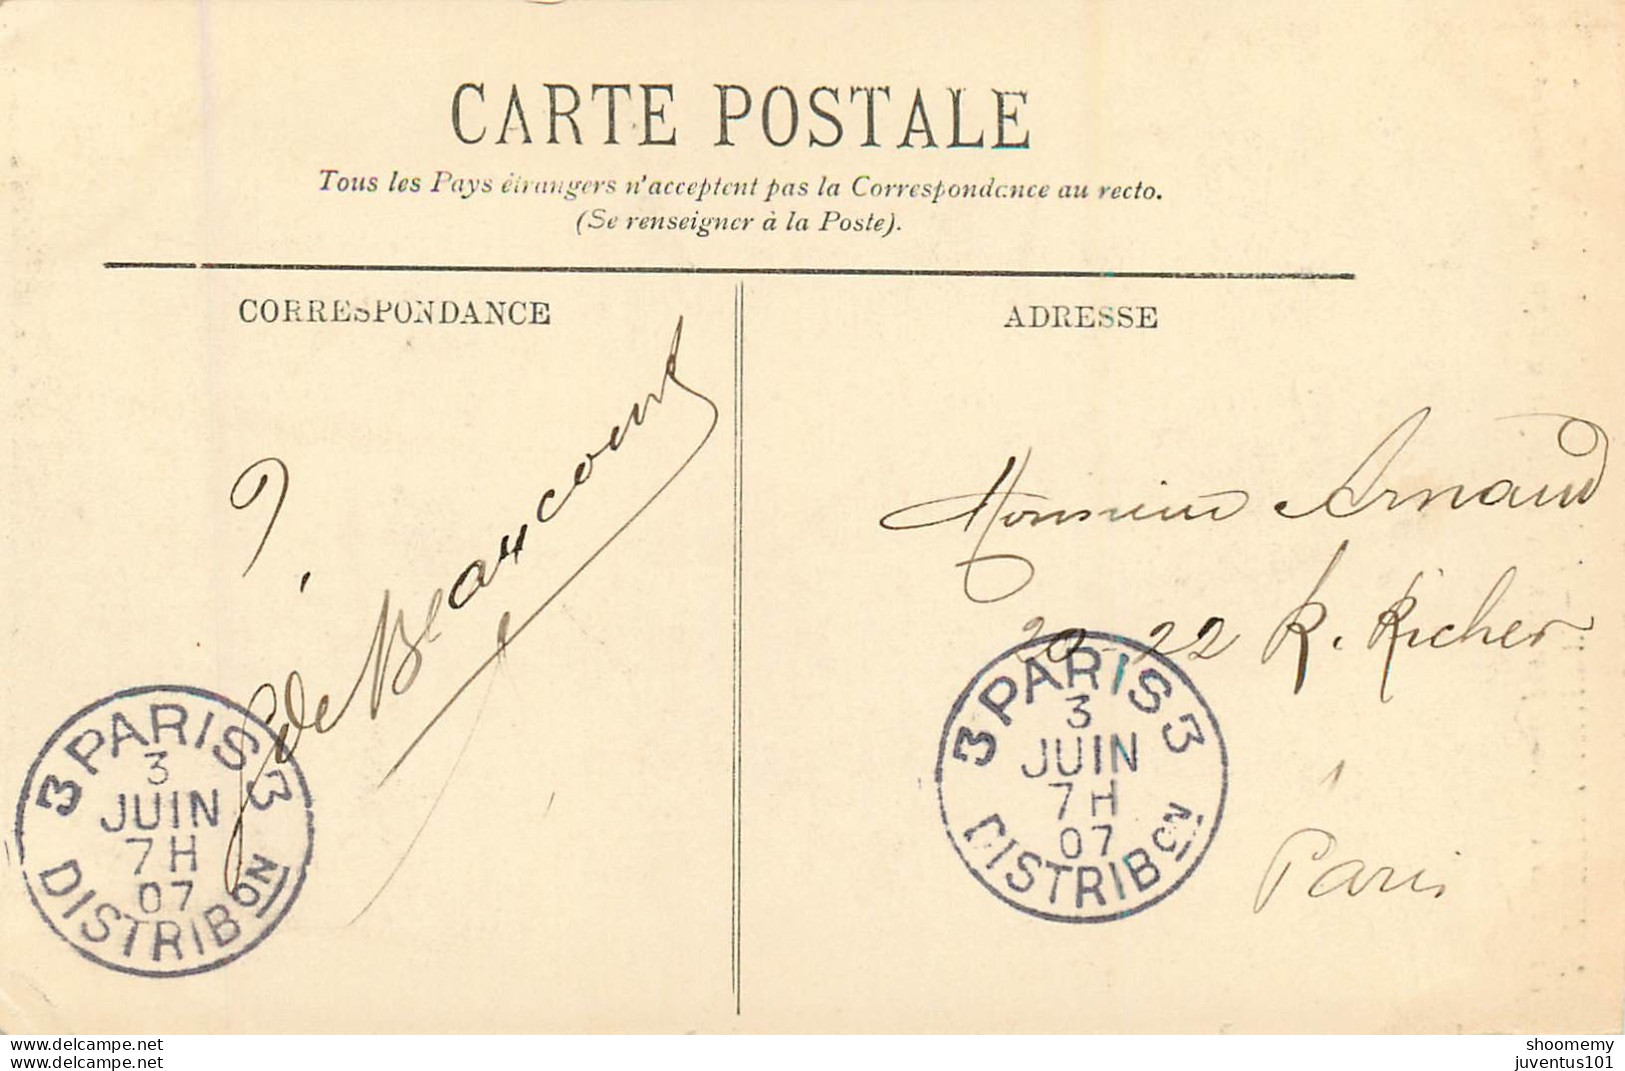 CARTE POSTALE
Tous les Pays étrangers n'acceptent pas la Correspondance au recto.
(Se renseigner à la Poste).
CORRESPONDANCE
ADRESSE
de Beaucourt
Monsieur Arnaud
20-22 R. Richer
Paris
3 PARIS 3
3
JUIN
7H
07
DISTRIBON
3 PARIS 3
3
JUIN
7H
07
DISTRIBON
delcampe.net
delcampe.net
shoomemy
juventus101